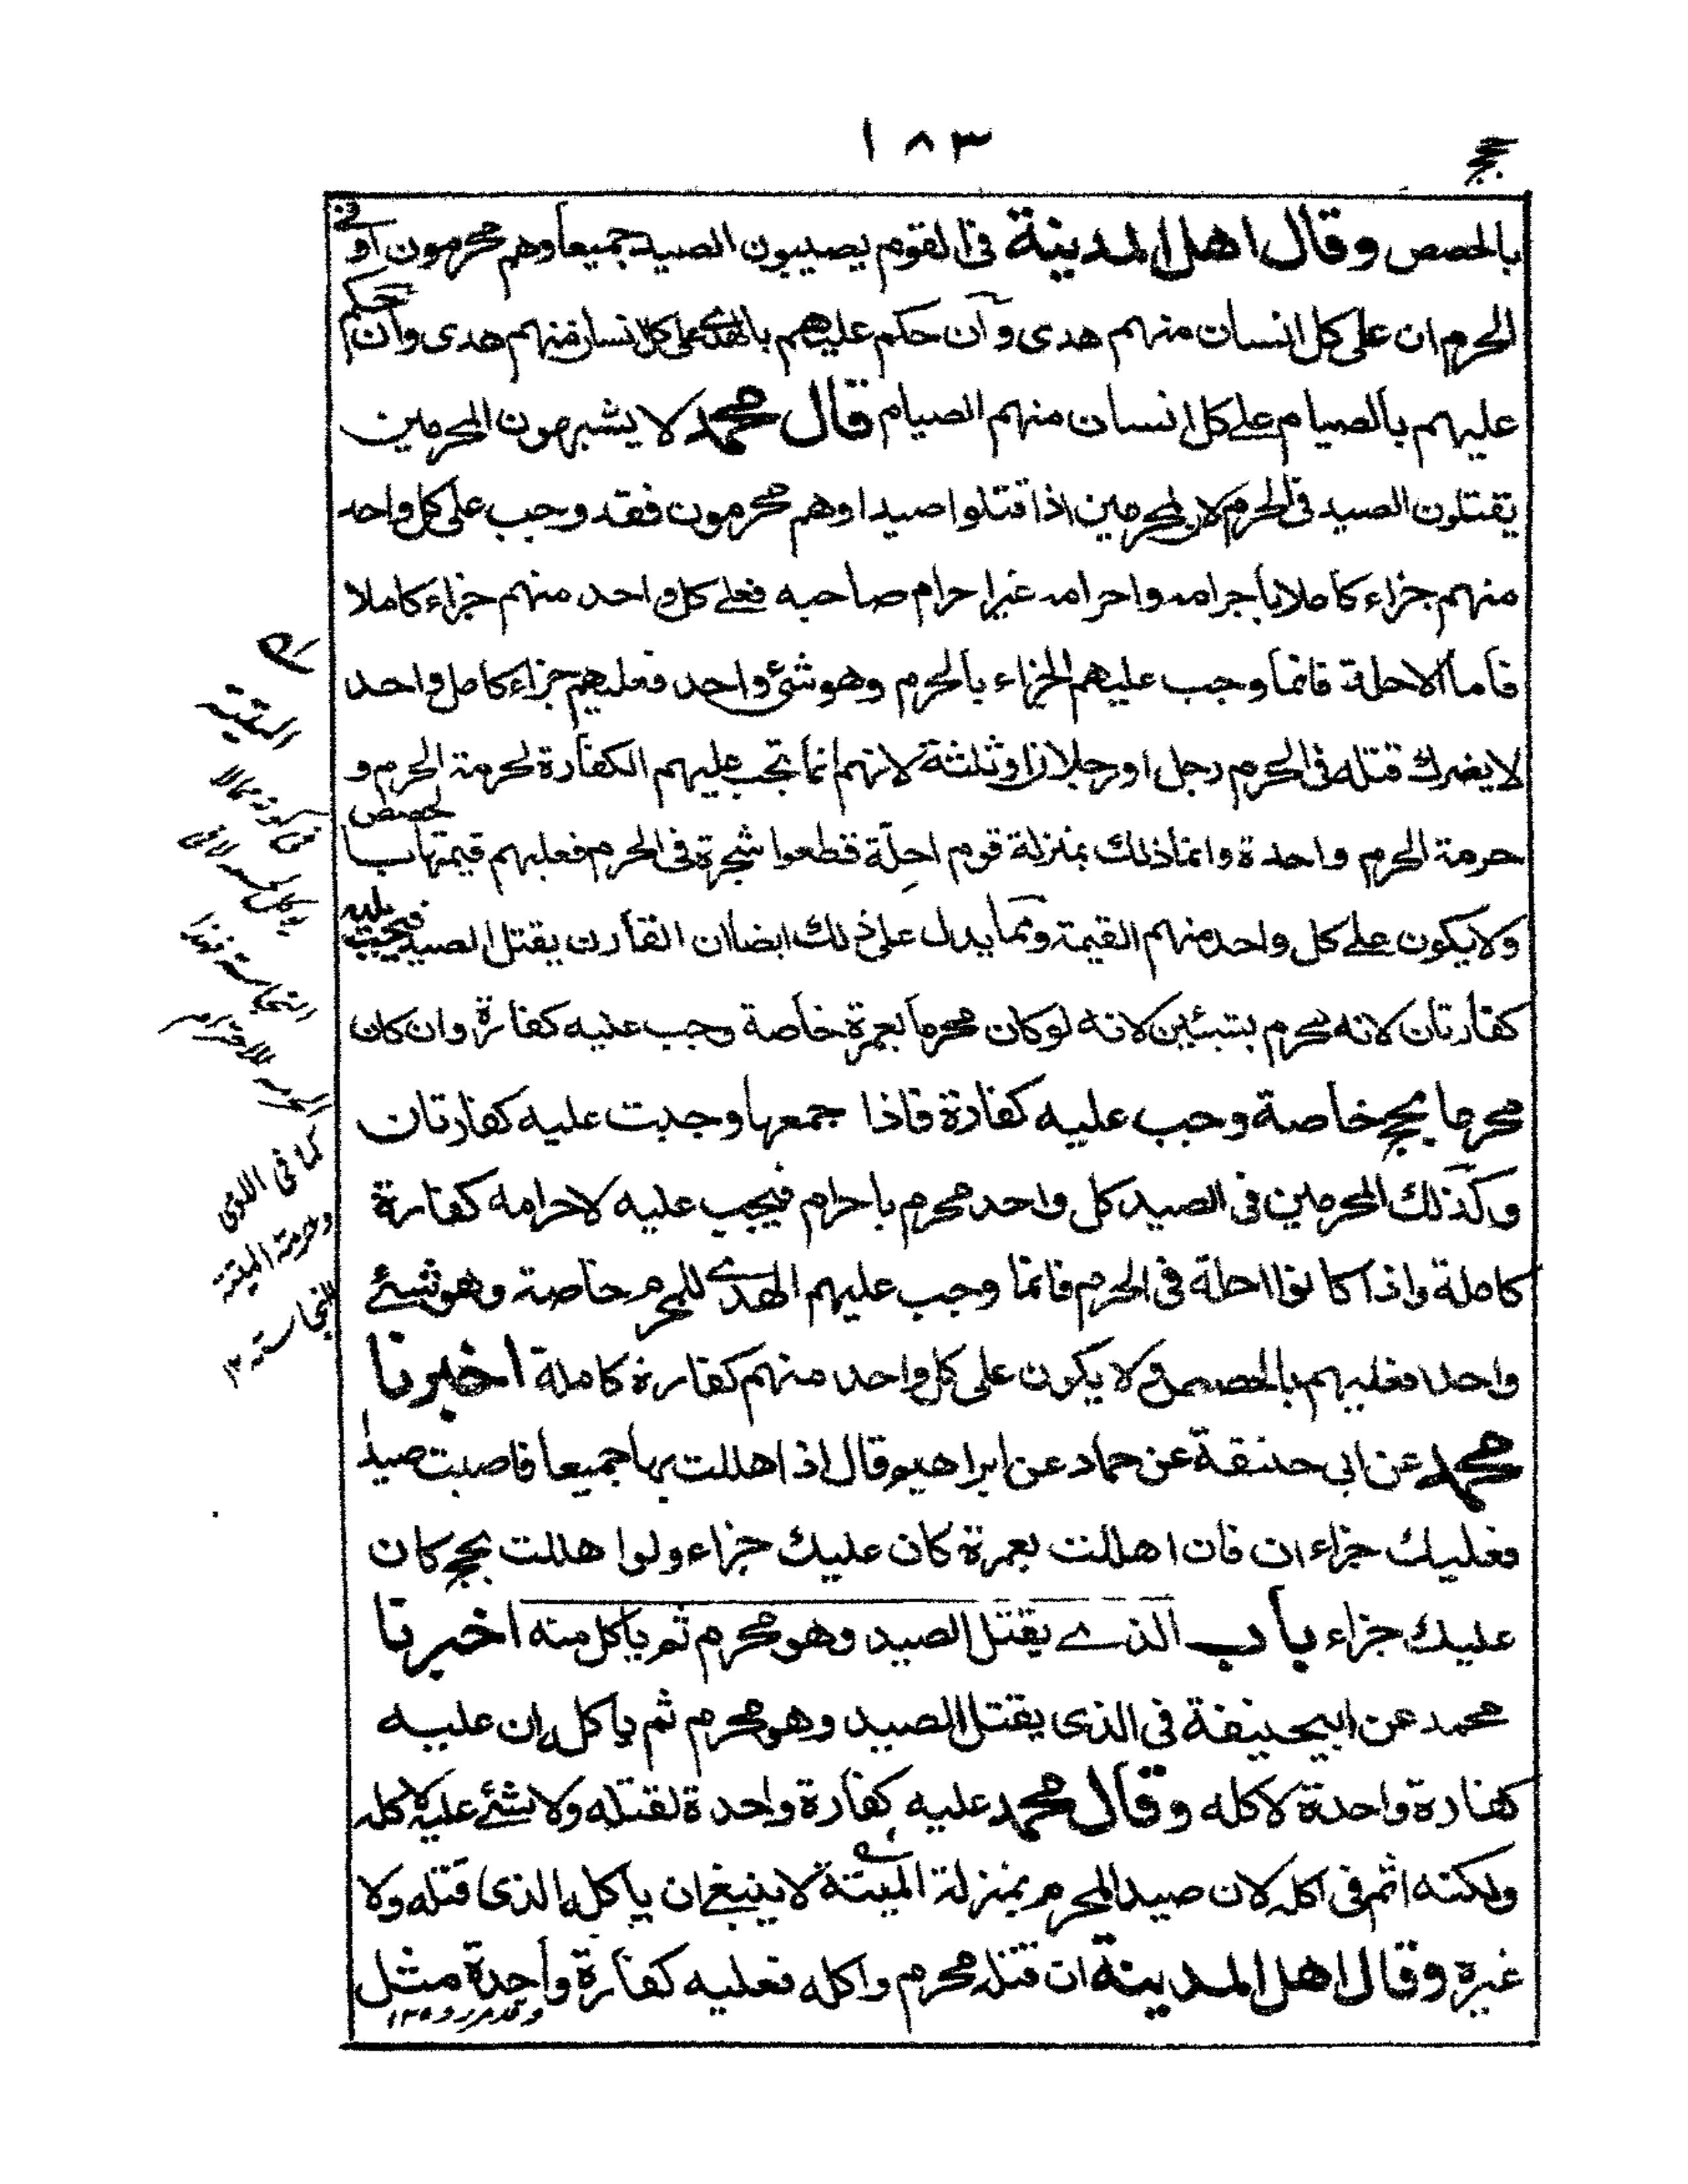 ١٨٣
حج
بالحصص وقال اهل المدينة فى القوم يصيبون الصيد جميعا وهم محرمون او فى
الحرم ان على كل انسان منهم هدى وان حكم عليهم بالهدى على كل انسان منهم هدى وان حكم
عليهم بالصيام على كل انسان منهم الصيام قال محمد لا يشبهون المحرمين
يقتلون الصيد فى الحرم لان المحرمين اذا قتلوا صيدا وهم محرمون فقد وجب على كل واحد
منهم جزاء كاملا باحرامه واحرامه غير احرام صاحبه فعلى كل واحد منهم جزاء كاملا
فاما الاحلة فانما وجب عليهم الجزاء بالحرم وهو شئ واحد فعليهم جزاء كامل واحد
لا يضرك قتله فى الحرم رجل او رجلان او ثلثة لانهم انما تجب عليهم الكفارة لحرمة الحرم و
حرمة الحرم واحدة وانما ذلك بمنزلة قوم احلّة قطعوا شجرة فى الحرم فعليهم قيمتها بالحصص
ولا يكون على كل واحد منهم القيمة ومما يدل على ذلك ايضا ان القارن يقتل الصيد فيجب عليه
كفارتان لانه محرم بشيئين لانه لو كان محرما بعمرة خاصة وجب عليه كفارة وان كان
محرما بحج خاصة وجب عليه كفارة فاذا جمعها وجبت عليه كفارتان
وكذلك المحرمين فى الصيد كل واحد محرم باحرام فيجب عليه لاحرامه كفارة
كاملة واذا كانوا احلة فى الحرم فانما وجب عليهم الهدى للحرم خاصة وهو شئ
واحد فعليهم بالحصص ولا يكون على كل واحد منهم كفارة كاملة اخبرنا
محمد عن ابى حنيفة عن حماد عن ابراهيم قال اذا اهللت بها جميعا فاصبت صيدا
فعليك جزاءان فان اهللت بعمرة كان عليك جزاء ولو اهللت بحج كان
عليك جزاء باب الذى يقتل الصيد وهو محرم ثم ياكل منه اخبرنا
محمد عن ابيحنيفة فى الذى يقتل الصيد وهو محرم ثم ياكله ان عليه
كفارة واحدة لاكله وقال محمد عليه كفارة واحدة لقتله ولا شئ عليه لاكله
ولكنه اثم فى اكله لان صيد المحرم بمنزلة الميتة لا ينبغى ان ياكله الذى قتله ولا
غيره وقال اهل المدينة ان قتله محرم واكله فعليه كفارة واحدة مثل
كما فى
وحرمة الميتة